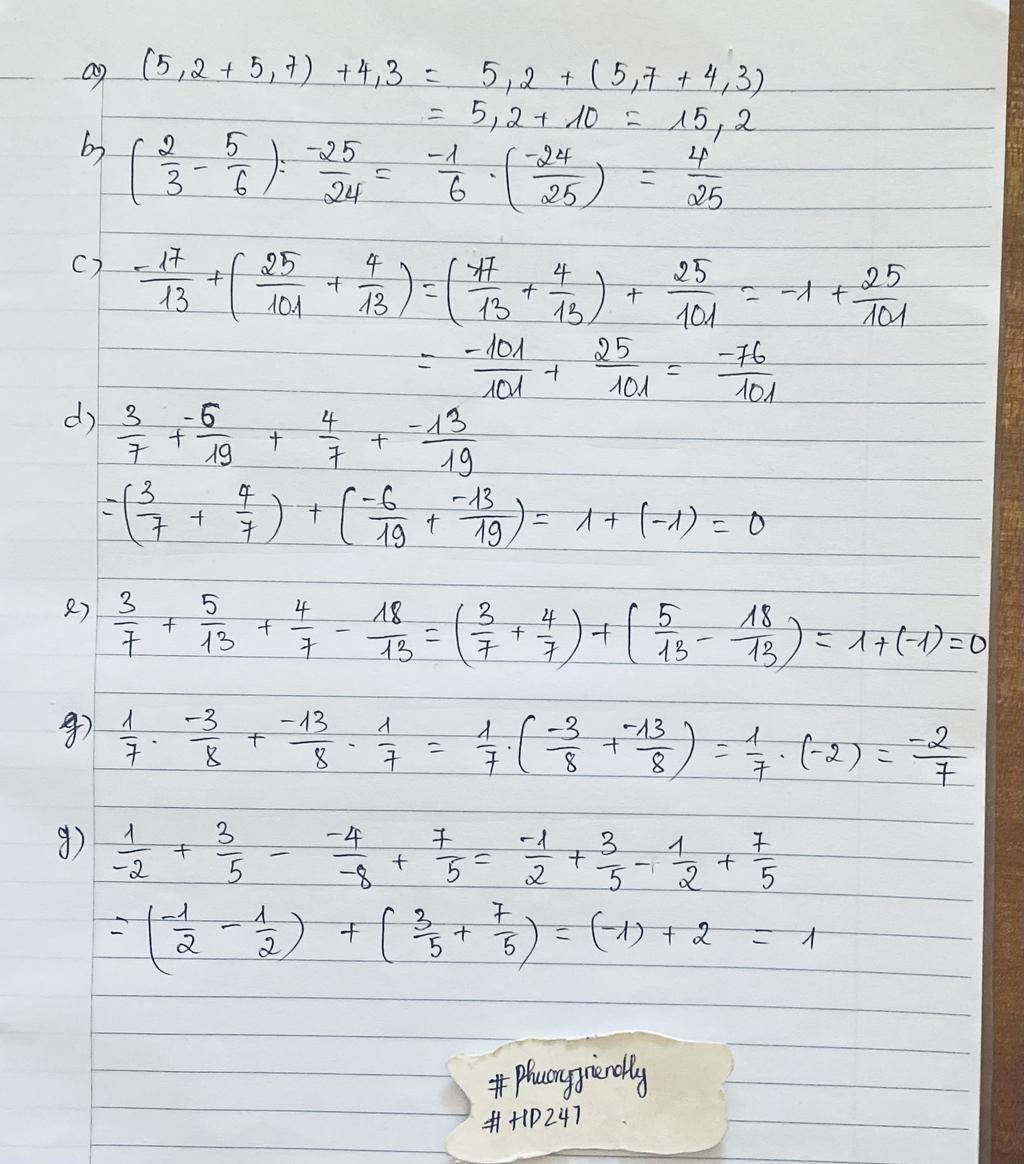 a) (5,2 + 5,7) + 4,3 = 5,2 + (5,7 + 4,3)
= 5,2 + 10 = 15,2
b) (2/3 - 5/6) : -25/24 = -1/6 . (-24/25) = 4/25
c) -17/13 + (25/101 + 4/13) = (-17/13 + 4/13) + 25/101 = -1 + 25/101
= -101/101 + 25/101 = -76/101
d) 3/7 + -6/19 + 4/7 + -13/19
= (3/7 + 4/7) + (-6/19 + -13/19) = 1 + (-1) = 0
e) 3/7 + 5/13 + 4/7 - 18/13 = (3/7 + 4/7) + (5/13 - 18/13) = 1 + (-1) = 0
g) 1/7 . -3/8 + -13/8 . 1/7 = 1/7 . (-3/8 + -13/8) = 1/7 . (-2) = -2/7
g) 1/-2 + 3/5 - -4/-8 + 7/5 = -1/2 + 3/5 - 1/2 + 7/5
= (-1/2 - 1/2) + (3/5 + 7/5) = (-1) + 2 = 1
#Phuongfriendly
#HD247